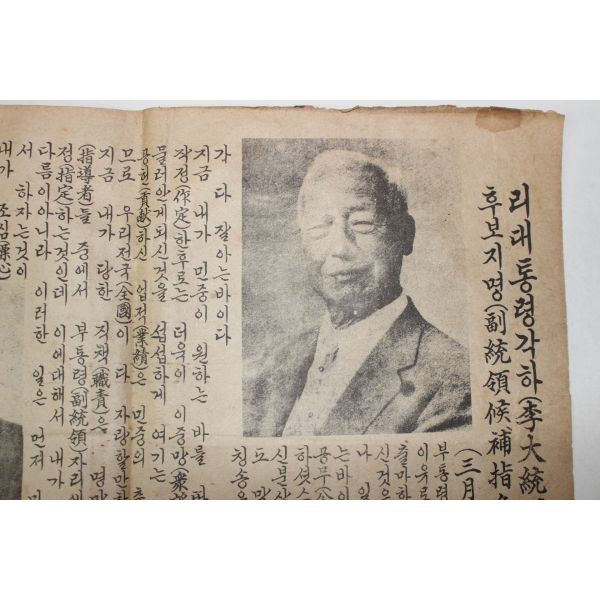 리대통령각하(李大統
후보지명(副統領候補指
(三月
부통령
이유로
출마하
신것을
나 일
는바이
용무(公
하셧스
신분상
도 많
칭송을
가 다 잘아는바이다
지금 내가 민중이 원하는 바를 따
작정(作定)한후로는 더욱이 이중망(衆望
물러안게되신것을 섭섭하게 여기는
공헌(貢献)하신 업적(業績)은 민중의
므로 우리전국(全國)이 다 자랑할만한
지금 내가 당한 직책(職責)은 명망
(指導者)들 중에서 부통령(副統領)자리에
정(指定)하는것인데 이에대해서 내가
다름이아니라 이러한 일은 먼저
서 하자는것이
내가 조심(操心